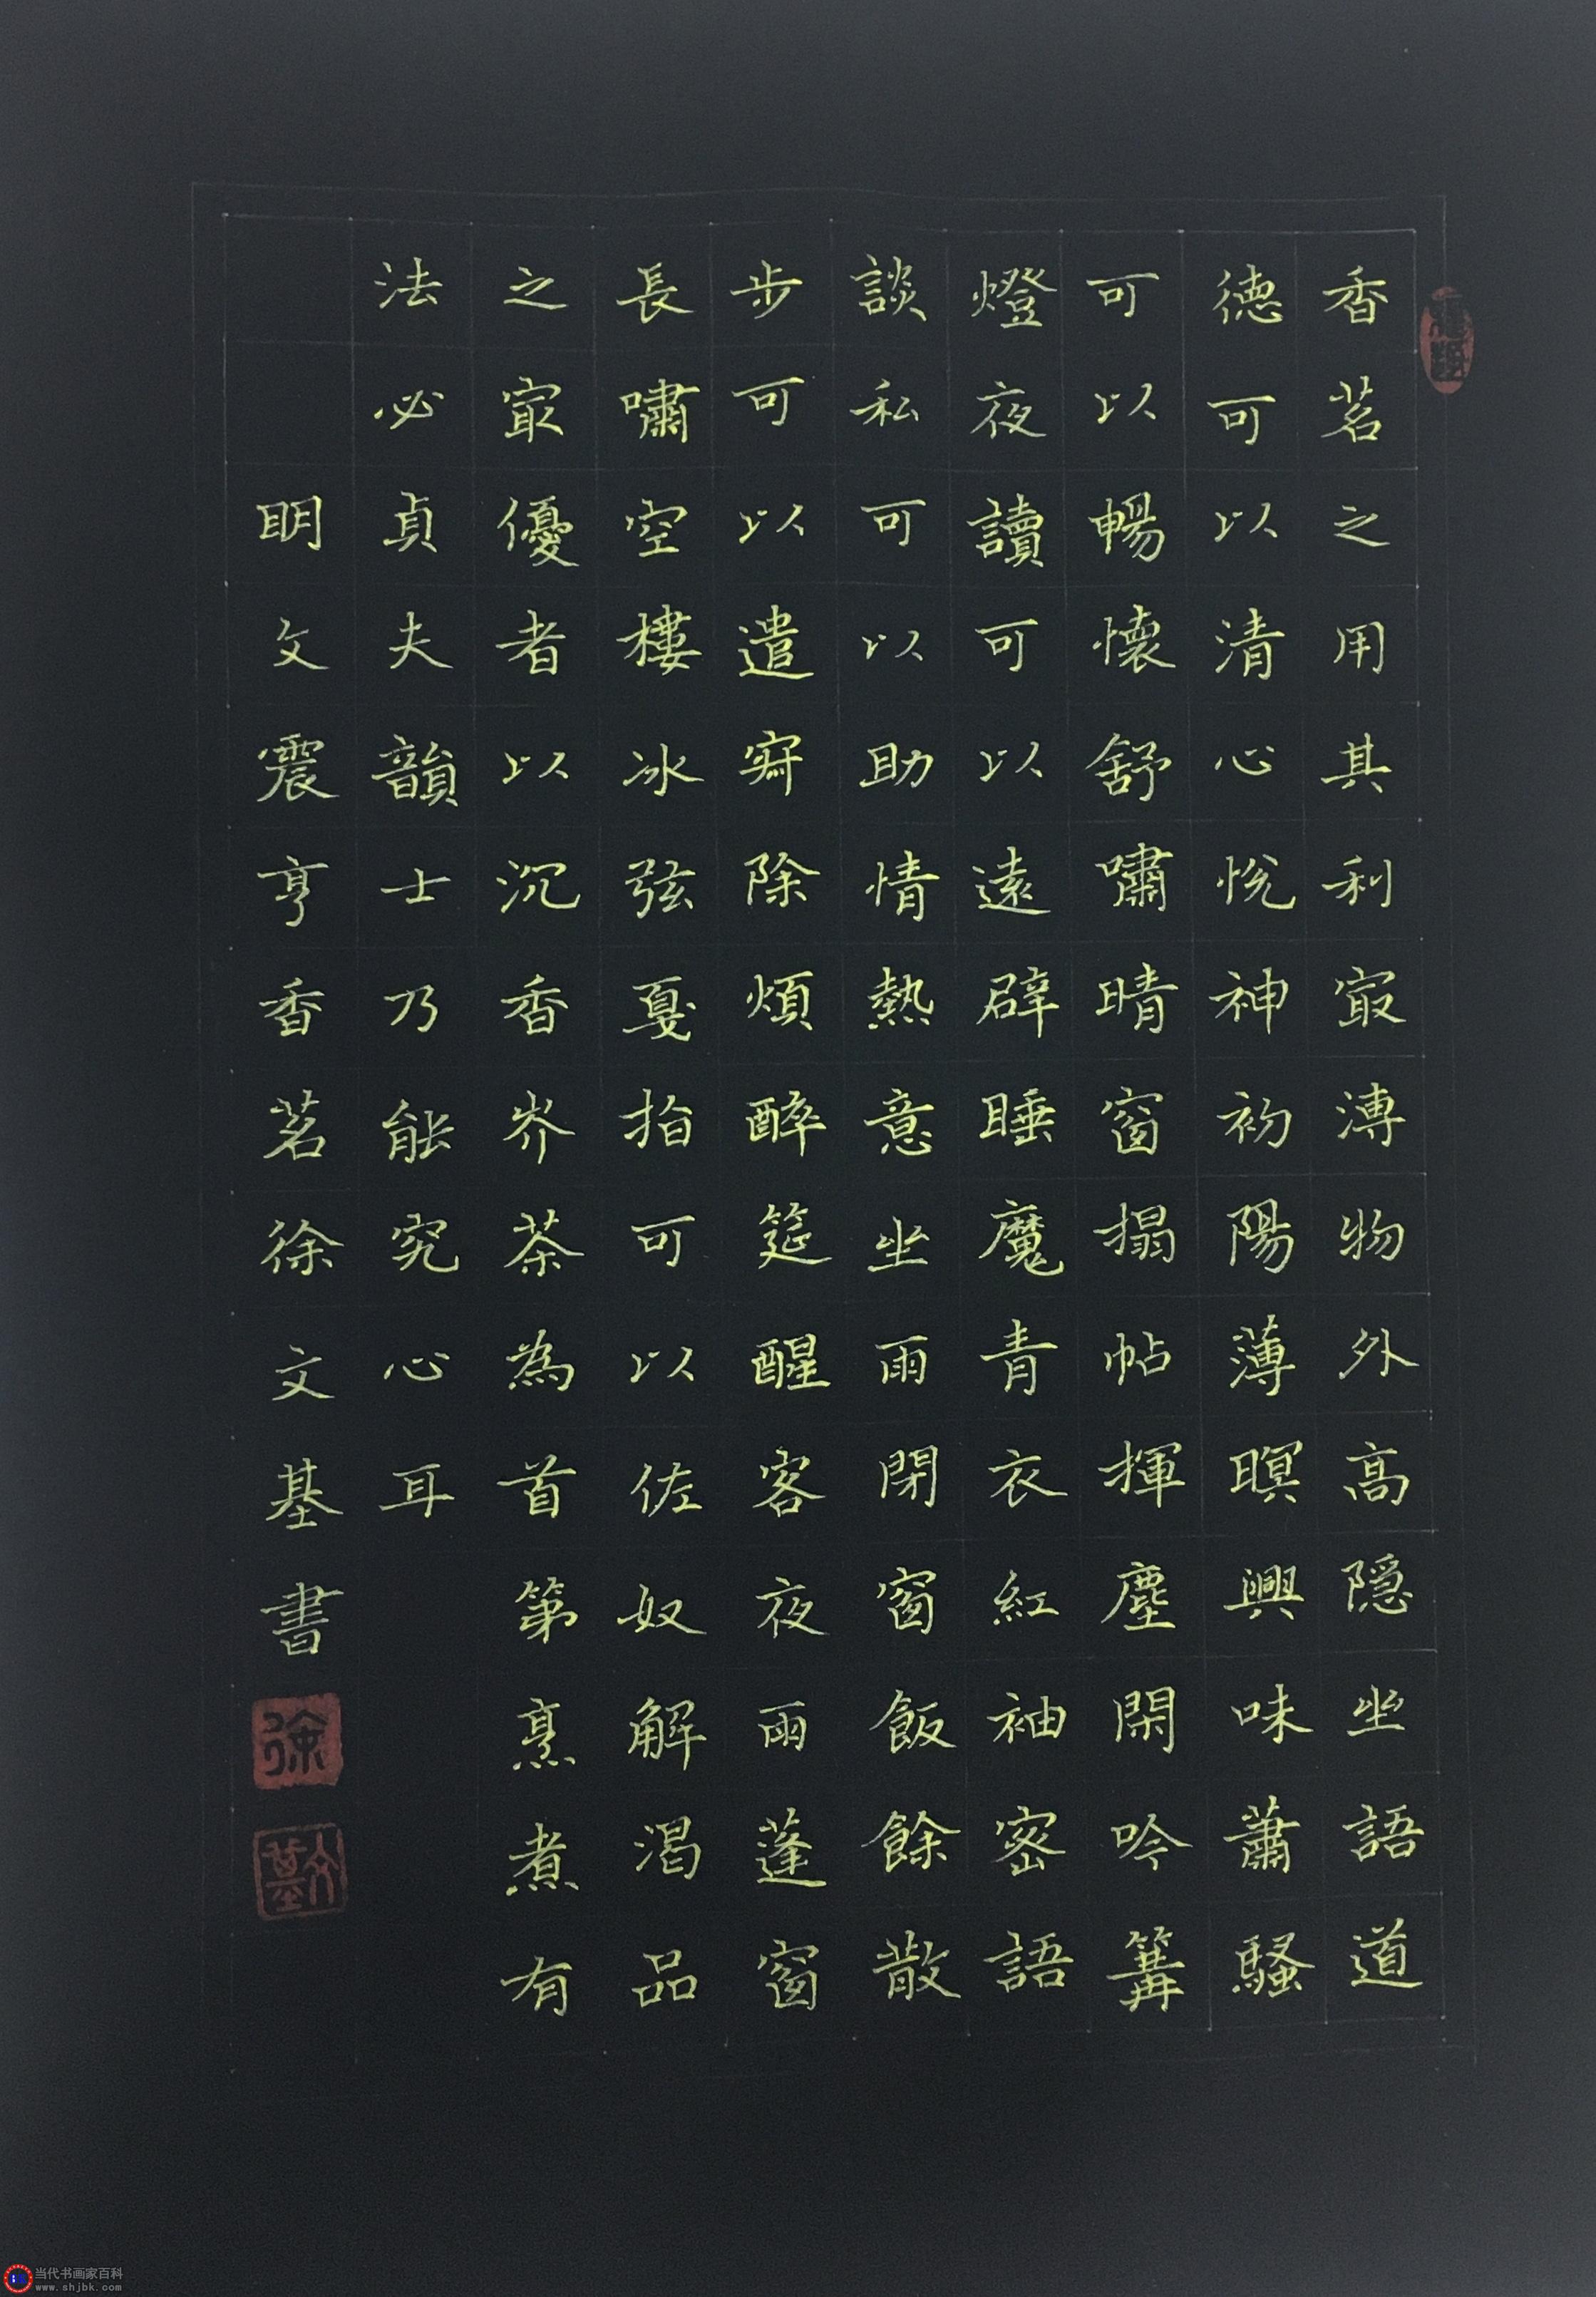 香茗之用其利㝡溥物外高隱坐語道
德可以清心悅神初陽薄暝興味蕭騷
可以暢懷舒嘯晴窗搨帖揮麈閑吟篝
燈夜讀可以遠辟睡魔青衣紅袖密語
談私可以助情熱意坐雨閉窗飯餘散
步可以遣寂除煩醉筵醒客夜雨蓬窗
長嘯空樓冰弦戛指可以佐奴解渴品
之㝡優者以沉香岕茶為首第烹煮有
法必貞夫韻士乃能究心耳
明文震亨香茗徐文基書
徐
文基
当代书画家百科
www.shjbk.com